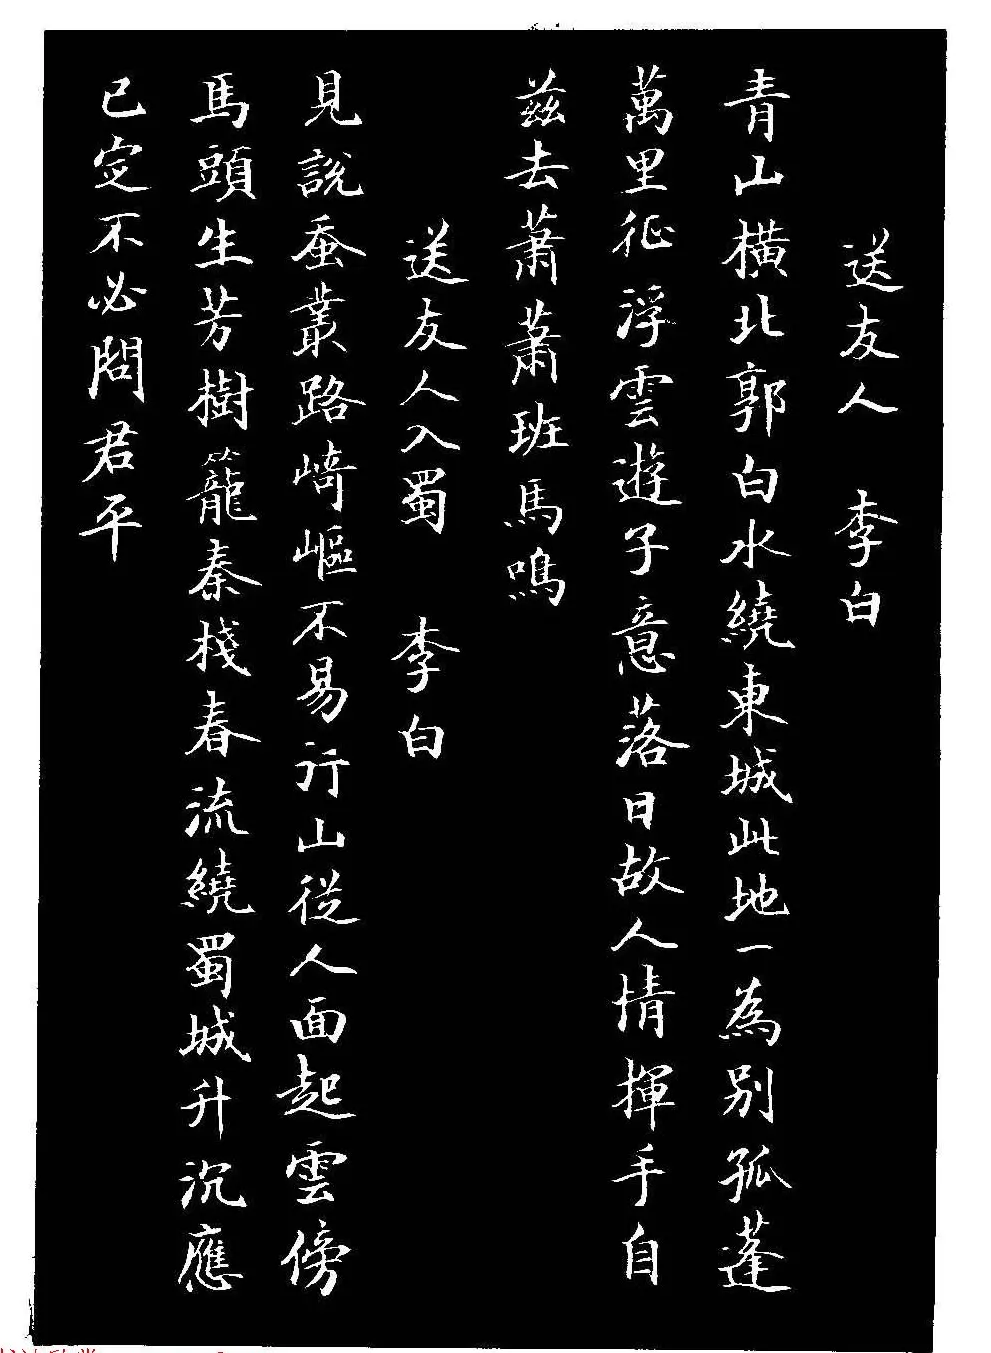 送友人 李白
青山橫北郭白水繞東城此地一為別孤蓬
萬里征浮雲遊子意落日故人情揮手自
茲去蕭蕭班馬鳴
送友人入蜀 李白
見說蚕叢路崎嶇不易行山從人面起雲傍
馬頭生芳樹籠秦棧春流繞蜀城升沉應
已定不必問君平